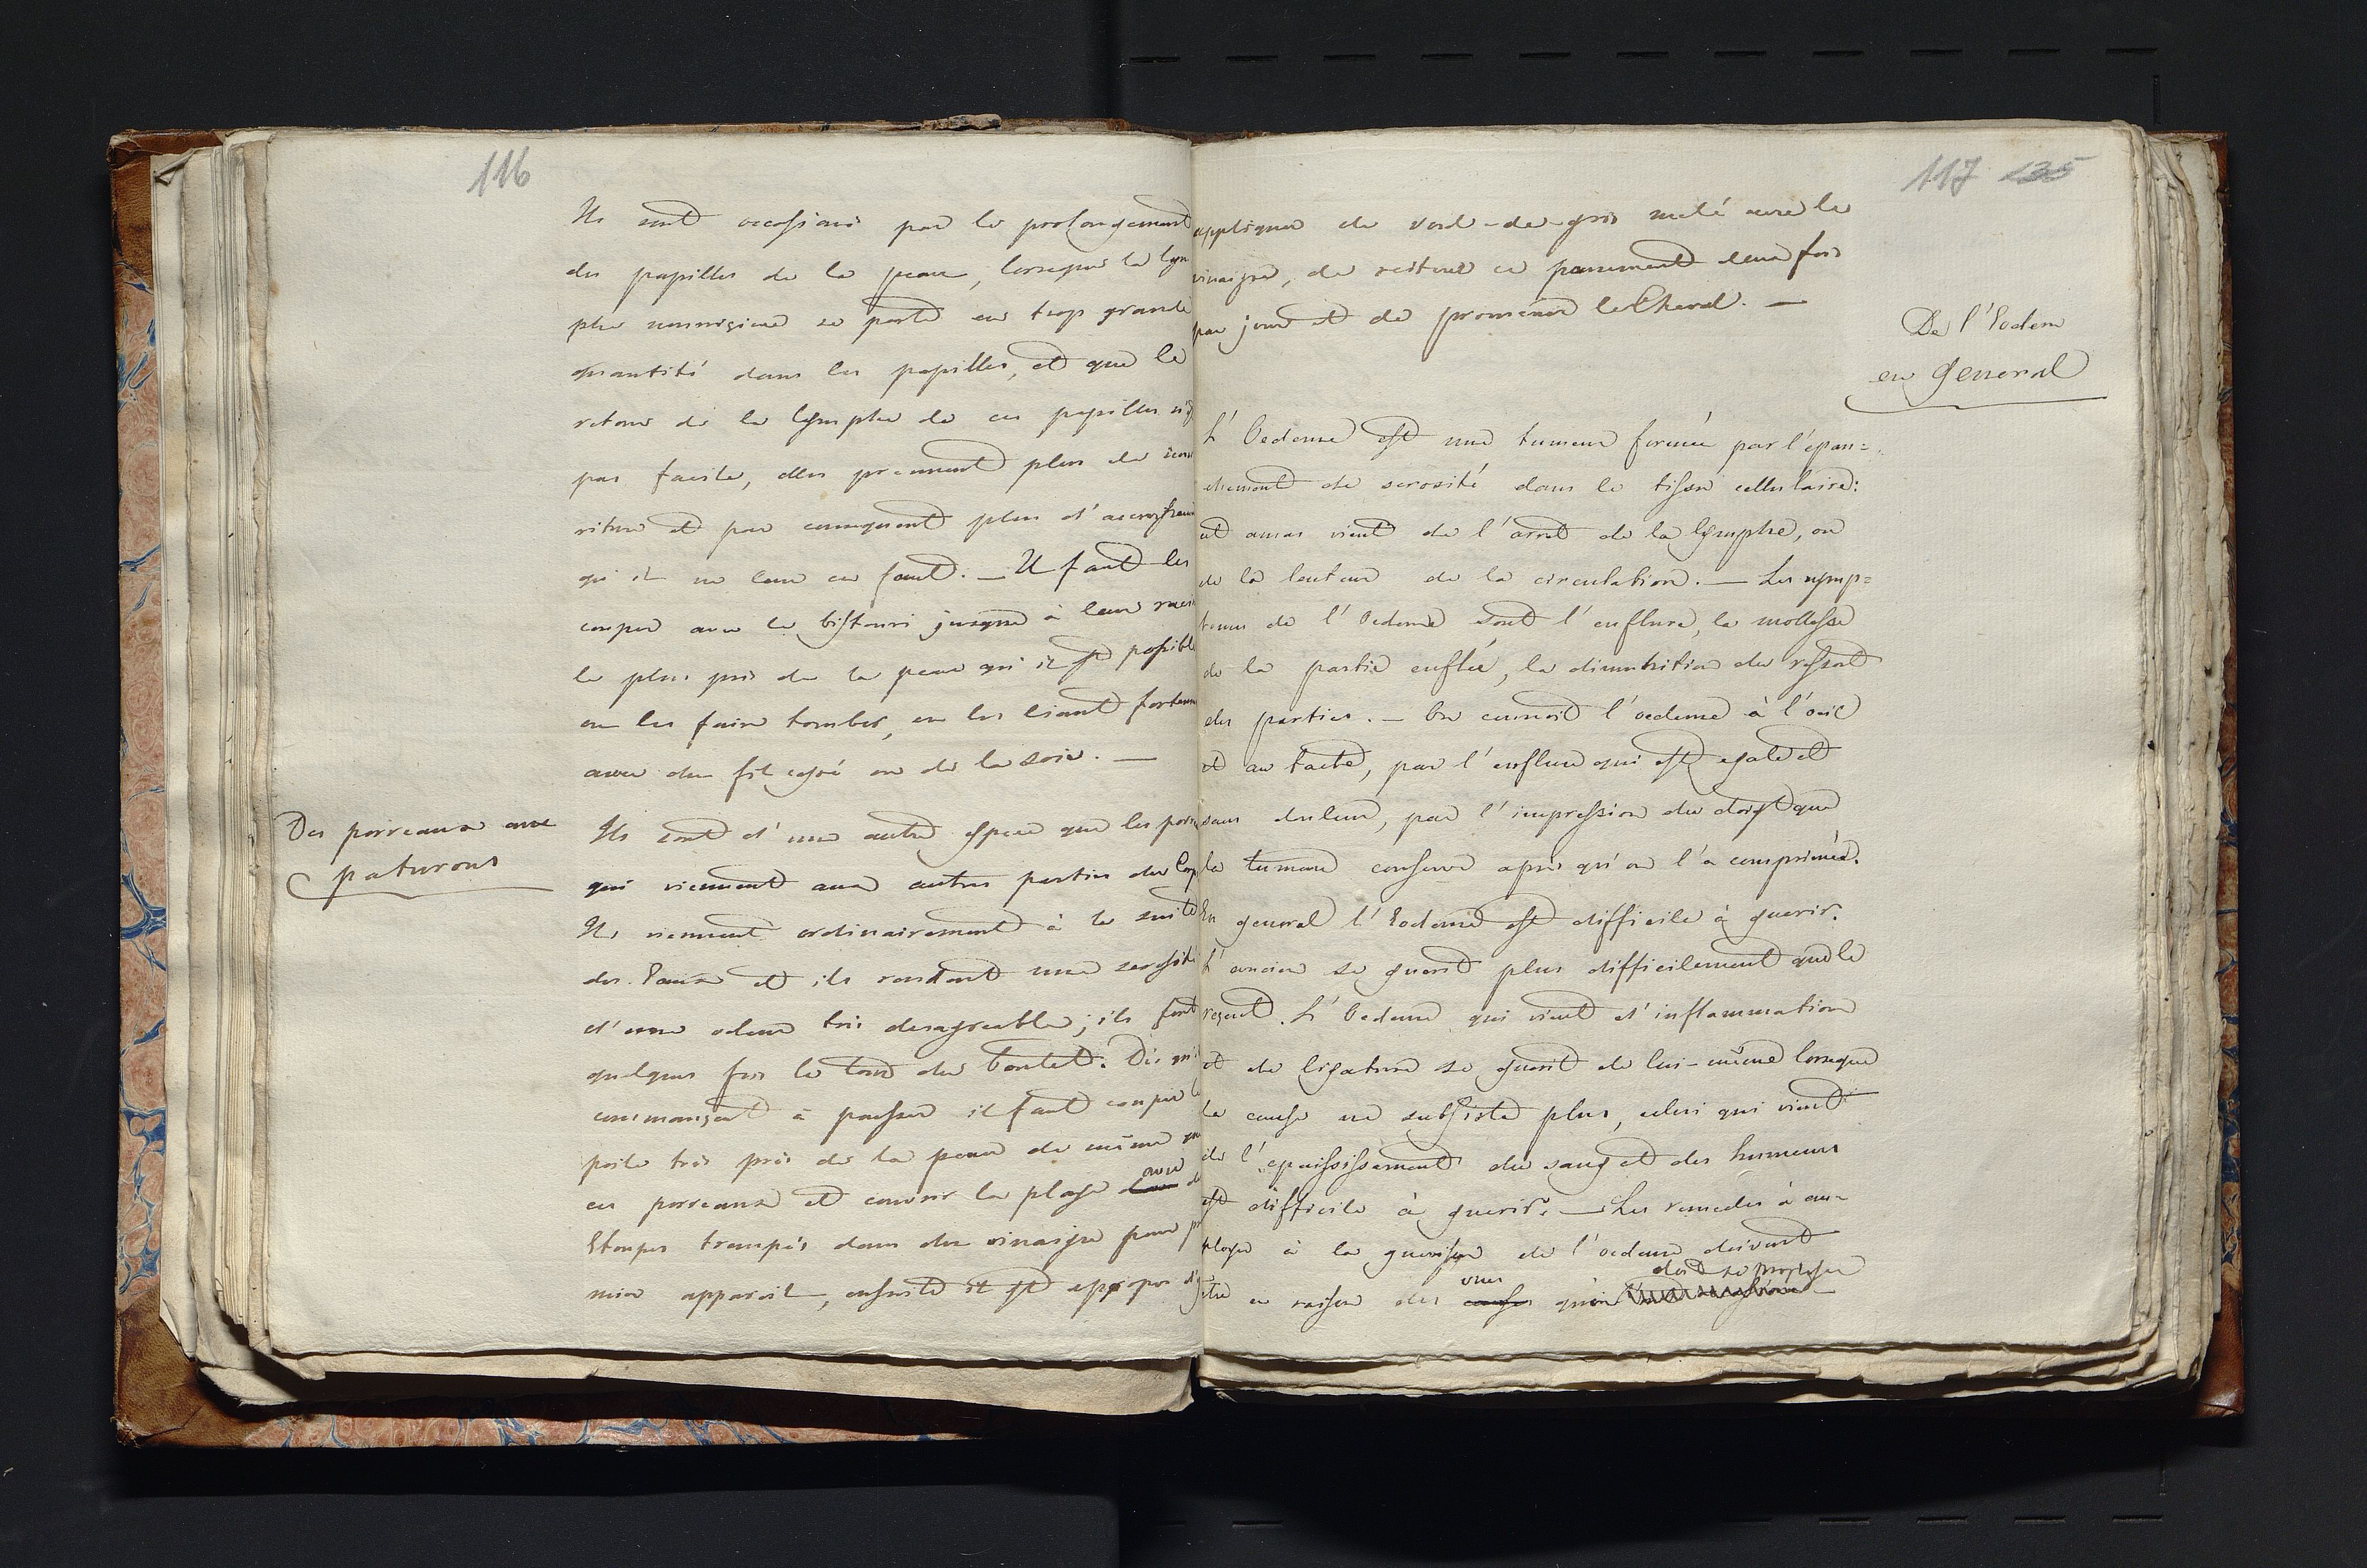 116
Ils sont occasionés par le prolongement
des papilles de la peau, lorsque la lym
phe nourriciere se porte en trop grande
quantité dans les papilles, et que le
retour de la lymphe de ces papilles n'est
pas facile, elles prennent plus de nour
riture et par consequent plus d'accroissem
qu'il ne leur en faut. — Il faut les
couper avec le bistouri jusque à leur racin
le plus près de la peau qu'il est possible
ou les faire tomber, en les liant fortem
avec du fil ou de la soie. —
Des porreaux aux
paturons
Ils sont d'une autre espece que les porr
qui viennent aux autres parties du Corp
Ils viennent ordinairement à la suite
des Eaux et ils rendent une serosité
d'une odeur très desagreable; ils font
quelques fois le tour du boulet. Dès qu'il
commançent à pousser il faut couper le
poile très près de la peau de même que
ces porreaux et couvrir la plaie avec de
Etoupes trempés dans du vinaigre pour pr
mier appareil, ensuite il est apropos d'y
117 235
appliquer du verd-de-gris melé avec le
vinaigre, de reiterer ce pansement deux fois
par jour et de promener le Cheval. —
De l'Eodem
en General
L'Oedeme est une tumeur formée par l'épan=
chement de serosité dans le tissu cellulaire:
cet amas vient de l'arret de la lymphe, ou
de la lenteur de la circulation. — Les symp=
tomes de l'Oedeme sont l'enflure, la mollesse
de la partie enflée, la diminution du ressort
des parties. — On connoit l'oedeme à l'oeil
et au tacte, par l'enflure qui est egale et
sans douleur, par l'impression du doigt que
la tumeur conserve après qu'on l'a comprimée.
En general l'Eodeme est difficile à guerir.
L'ancien se guerit plus difficilement que le
reçent. L'Oedeme qui vient d'inflammation
et de ligature se guerit de lui-même lorsque
la cause ne subsiste plus, celui qui vient
de l'epaississement du sang et des humeurs
est difficile à guerir. — Les remedes à em-
ployer à la guerison de l'oedeme doivent
être en raison des vues qu'on doit se proposer